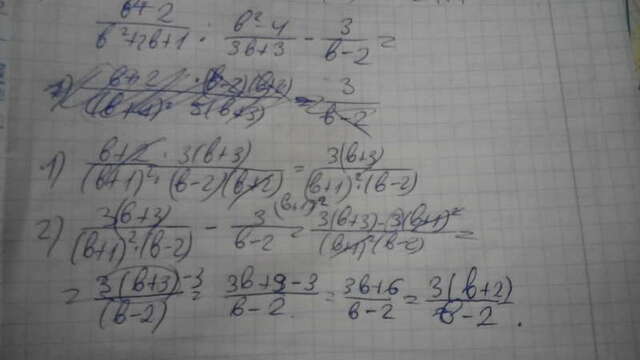 b+2/b²+2b+1 : b²-4/3b+3 - 3/b-2 =
1) b+2 · 3(b+3)/(b+1)² · (b-2)(b+2) = 3(b+3)/(b+1)² · (b-2)
2) 3(b+3)/(b+1)² · (b-2) - 3 (b+1)²/b-2 = 3(b+3) - 3(b+1)²/(b+1)² (b-2) =
= 3(b+3) - 3/(b-2) = 3b+9-3/b-2 = 3b+6/b-2 = 3(b+2)/b-2 .